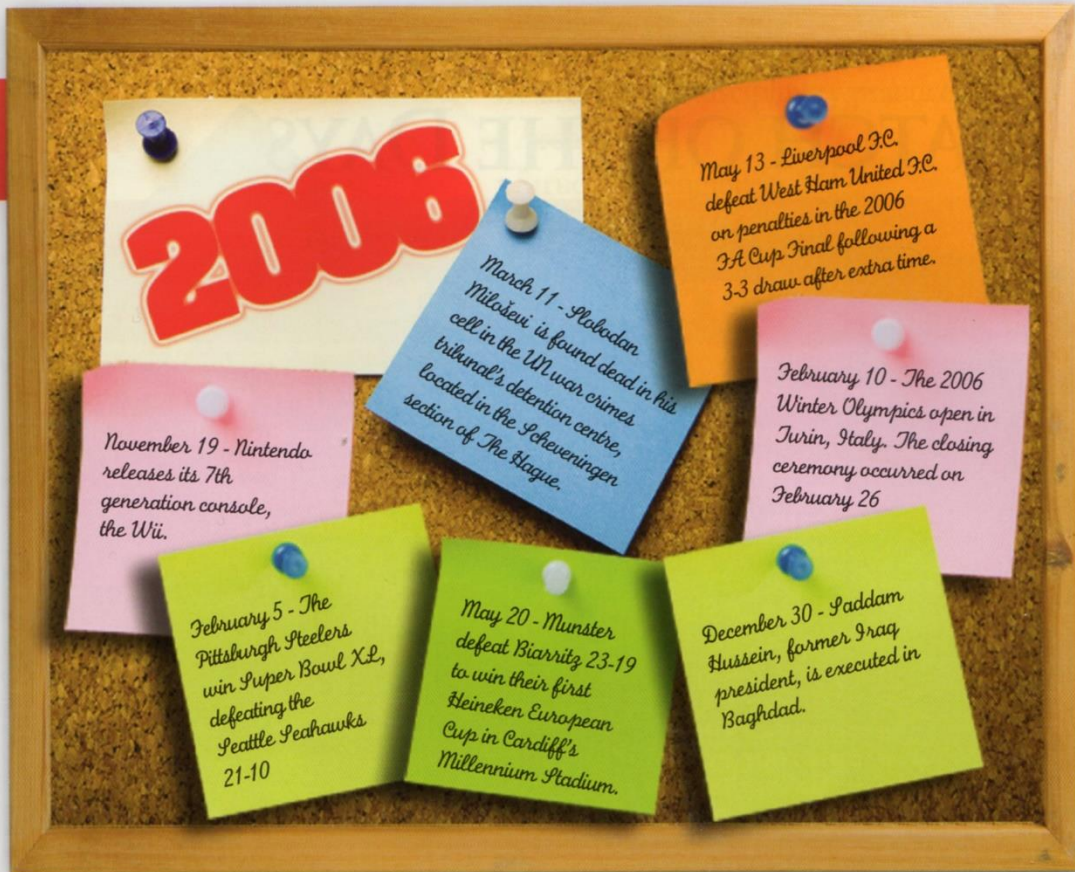 2006
May 13 - Liverpool F.C.
defeat West Ham United F.C.
on penalties in the 2006
FA Cup Final following a
3-3 draw after extra time.
March 11 - Slobodan
Miloševi is found dead in his
cell in the UN war crimes
tribunal's detention centre,
located in the Scheveningen
section of The Hague.
February 10 - The 2006
Winter Olympics open in
Turin, Italy. The closing
ceremony occurred on
February 26
November 19 - Nintendo
releases its 7th
generation console,
the Wii.
February 5 - The
Pittsburgh Steelers
win Super Bowl XL,
defeating the
Seattle Seahawks
21-10
May 20 - Munster
defeat Biarritz 23-19
to win their first
Heineken European
Cup in Cardiff's
Millennium Stadium.
December 30 - Saddam
Hussein, former Iraq
president, is executed in
Baghdad.